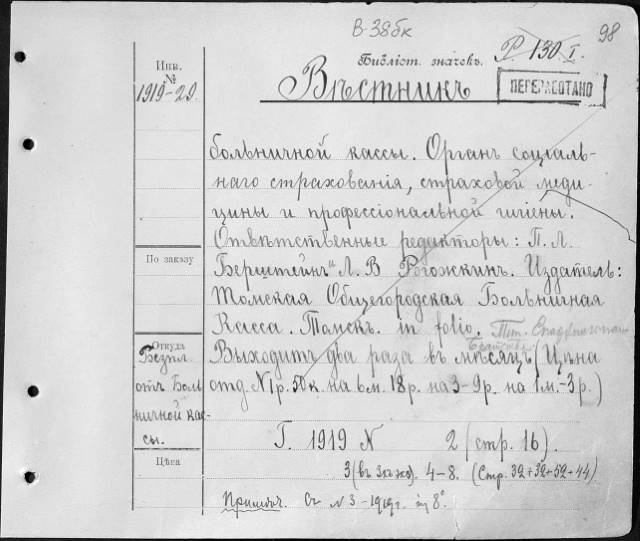 В-38бк
98
Р. 130 I.
Библіот. значекъ.
ПЕРЕРАБОТАНО
Инв.
№
1919-29.
Вѣстникъ
больничной кассы. Органъ соціаль-
наго страхованія, страховой меди-
цины и профессіональной гигіены.
Отвѣтственные редакторы: П. Л.
По заказу
Берштейнъ и Л. В Рогожкинъ. Издатель:
Томская Общегородская Больничная
Касса. Томскъ. in folio. Тип.
Братства
Откуда
Безпл.
отъ Боль
ничной кас-
сы.
Выходитъ два раза въ мѣсяцъ (Цѣна
отд. N 1р. 50к. на 6м. 18р. на 3-9р. на 1м.-3р.)
Г. 1919 N 2 (стр. 16).
Цѣна
3 (въ 3кз). 4-8. (Стр. 32+32+52+44)
Примѣч. Съ N 3-1919г. 8°